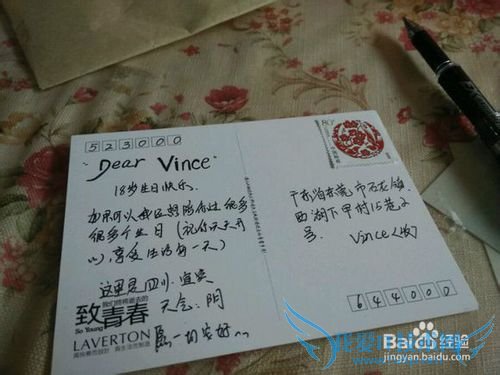 523000
"Dear Vince"
18岁生日快乐.
如果可以我还想陪你过很多
很多个生日 (祝你天天开
心), 享受生活每一天)
这里是四川·宜宾
天气: 阴
愿一切安好~
我们终将逝去的
致青春
So Young
LAVERTON
80分
广东省东莞市石龙镇
西湖下甲村15巷2
号.
Vince<收>
644000
Baidu经验
jingyan.baidu.com